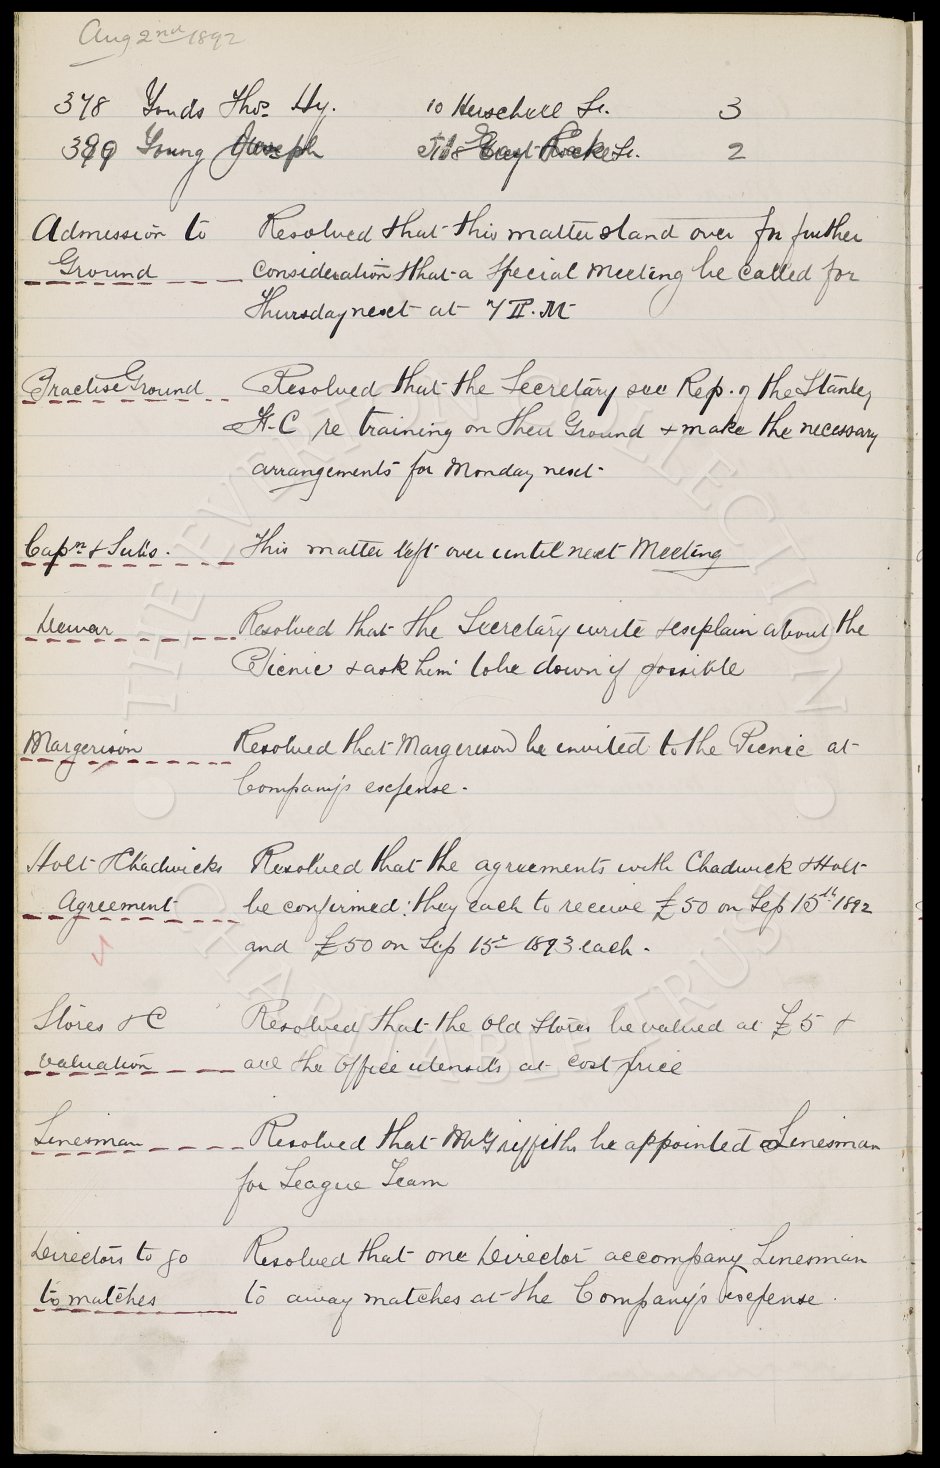 Aug 2nd 1892
378 Yonds Thos. Hy. 10 Herschell St. 3
Young Joseph St. 2
Admission to Ground Resolved that this matter stand over for further
consideration & that a Special Meeting be called for
Thursday next at 7 P.M
Practise Ground Resolved that the Secretary see Rep. of the Stanley
F.C re training on their Ground & make the necessary
arrangements for Monday next
Capn & Subs. This matter left over until next Meeting
Dewar Resolved that the Secretary write & explain about the
Picnic & ask him to be down if possible
Margerison Resolved that Margerison be invited to the Picnic at
Company's expense.
Holt & Chadwicks Agreement Resolved that the agreements with Chadwick & Holt
be confirmed: they each to receive £50 on Sep 15th 1892
and £50 on Sep 15th 1893 each.
Stores & C valuation Resolved that the Old Stores be valued at £5 &
all the Office utensils at cost price
Linesman Resolved that Mr Griffiths be appointed Linesman
for League Team
Directors to go to matches Resolved that one Director accompany Linesman
to away matches at the Company's expense.
THE EVERTON COLLECTION
CHARITABLE TRUST